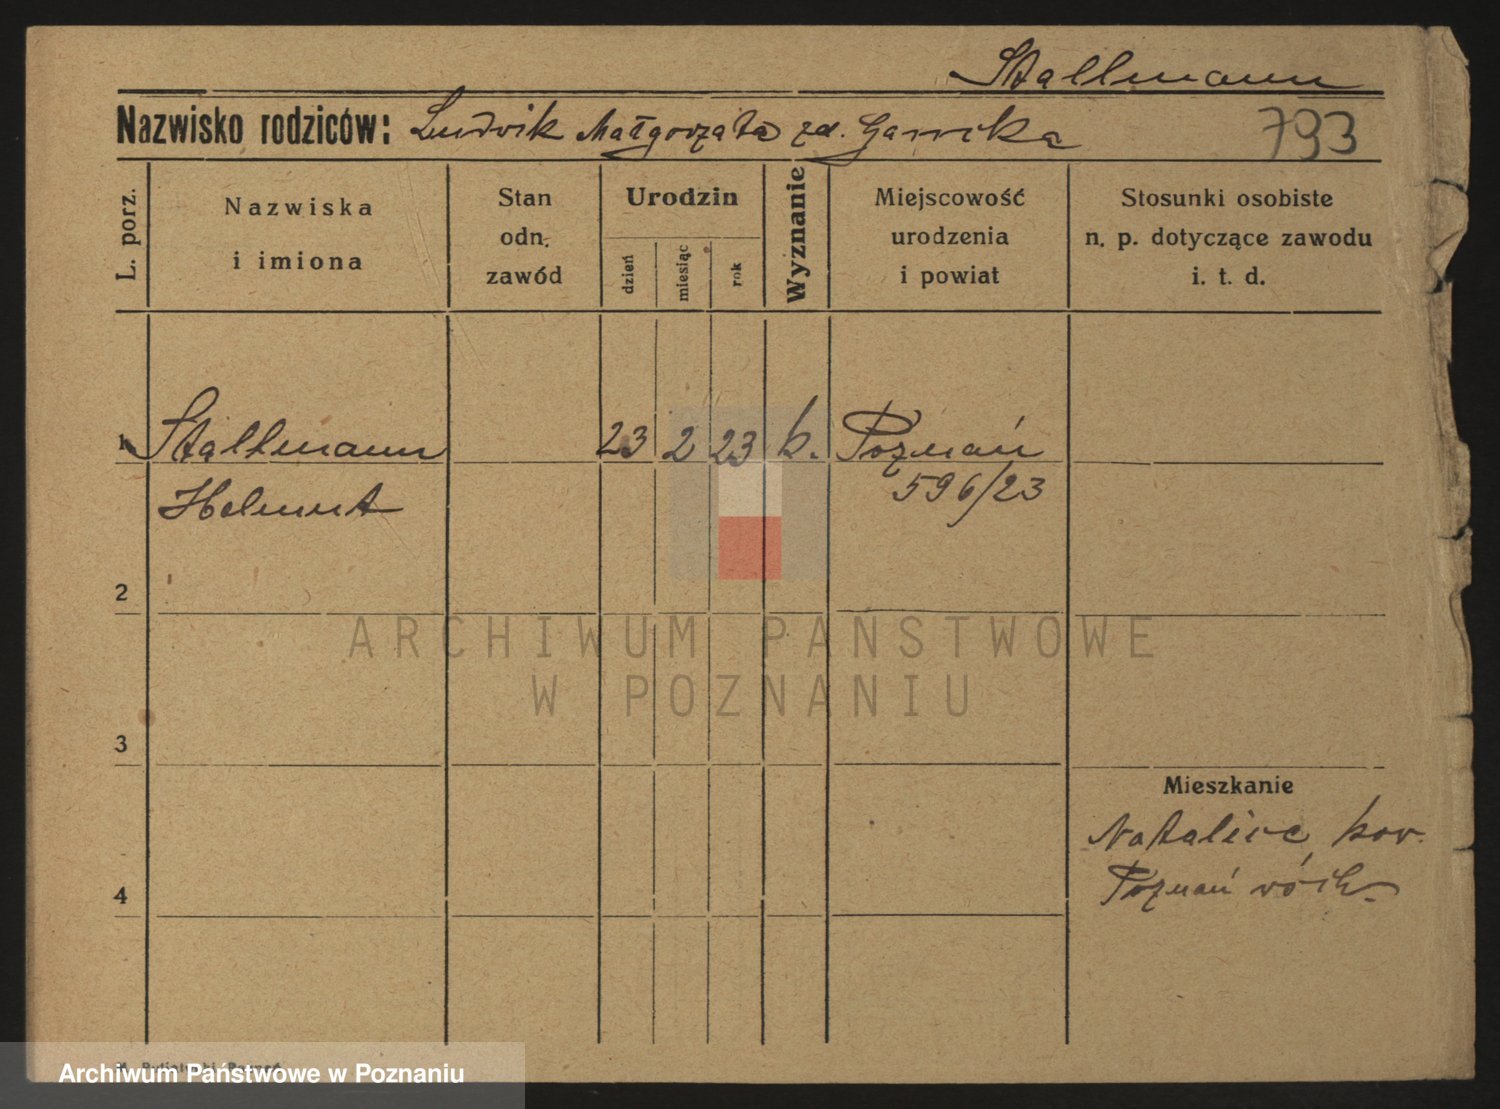 Stallmann
Nazwisko rodziców: Ludvik Małgorzata zd. Gawcka
793
L. porz.
Nazwiska
i imiona
Stan
odn.
zawód
Urodzin
dzień
miesiąc
rok
Wyznanie
Miejscowość
urodzenia
i powiat
Stosunki osobiste
n. p. dotyczące zawodu
i. t. d.
1 Stallmann 23 2 23 k. Poznań
Helmut 596/23
2
3
4
Mieszkanie
Natalice, pow.
Poznań
ARCHIWUM PAŃSTWOWE
W POZNANIU
Archiwum Państwowe w Poznaniu